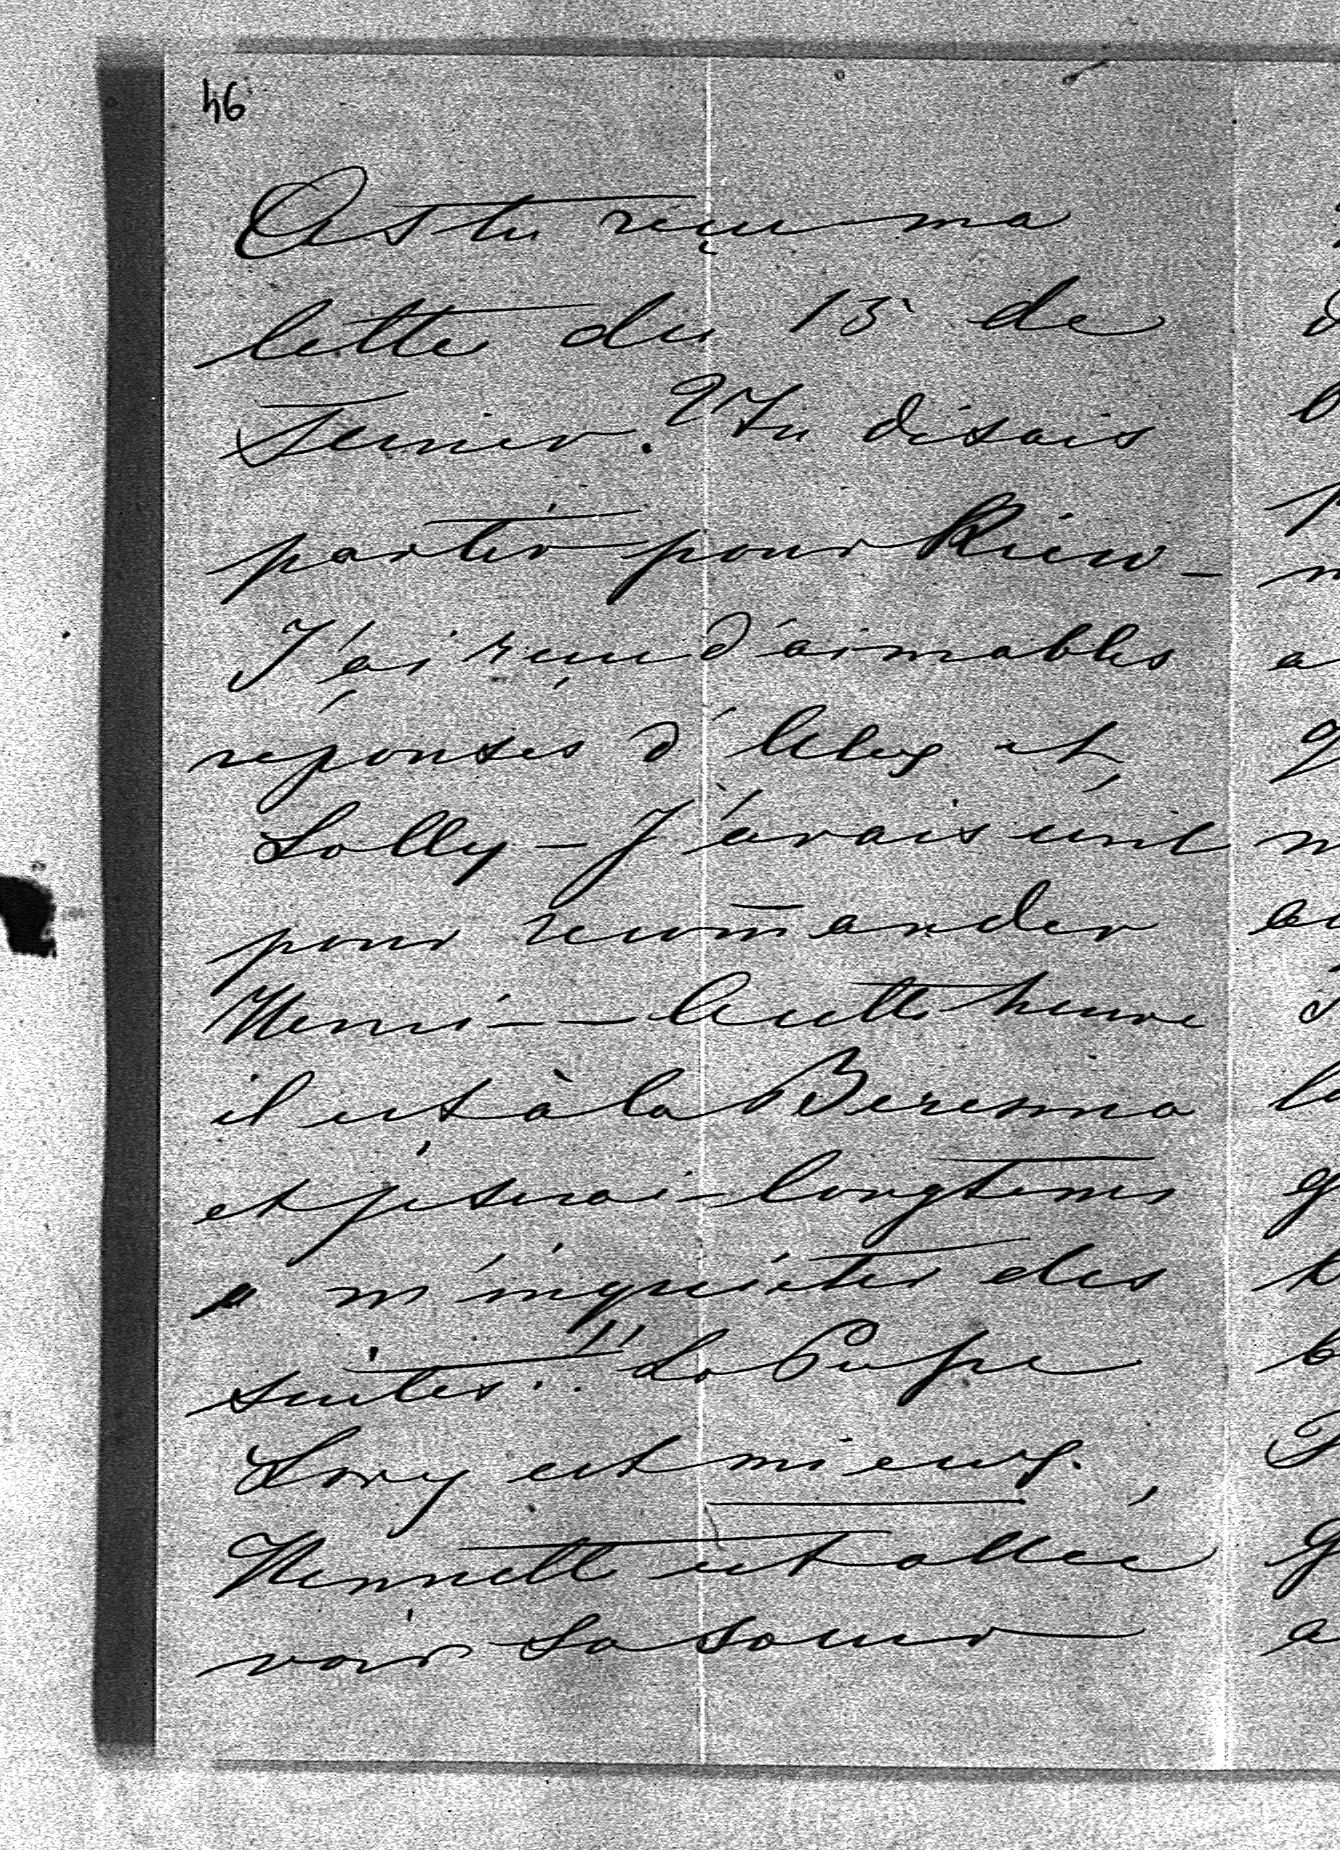 46
As tu reçu ma
lettre du 15 de
Fevrier? Tu disais
partir pour Kiew_
J'ai reçu d'aimables
reponses d'Alex et
Lolly – J'avais écrit
pour recom̄ander
Henri – – A cette heure
il est à la
et je serai longtems
a m'inquieter des
suites!! La
Lory est mieux.
est allée
voir sa soeur